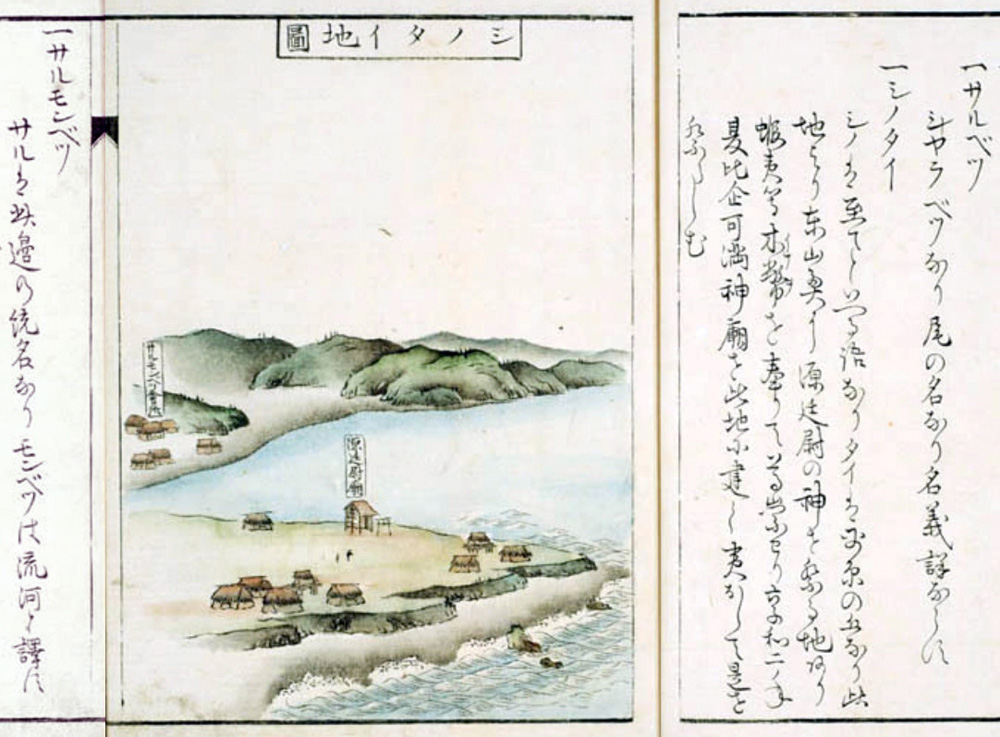 一サルベツ
シヤラベツなり尾の名なり名義詳ならす
一シノタイ
シノは至てといふ語なりタイは平原の丘なり此
地より東山奥に源廷尉の神を祭る地あり
蝦夷等木幣を奉りて享和二年
夏比企可満神廟を此地に建し夷をして是を
シノタイ地圖
源廷尉廟
サルモンベツ會所
一サルモンベツ
サルは此邊の統名なりモンベツは流河と譯す